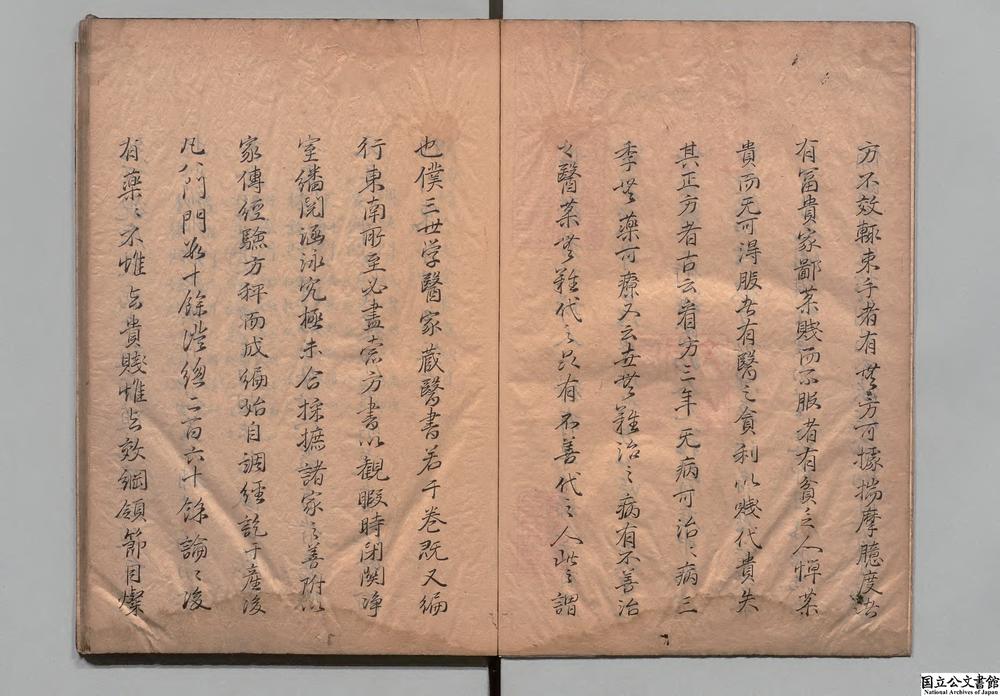 方不效輒束手者有無方可據揣摩臆度者
有富貴家鄙藥賤而不服者有貧乏人憚藥
貴而无可得服者有醫之貪利以賤代貴失
其正方者古云看方三年无病可治〻病三
季無藥可療又云世無難治之病有不善治
之醫藥無難代之品有不善代之人此之謂
也僕三世学醫家蔵醫書若干卷既又編
行東南所至必盡索方書以觀暇時閉関浄
室繙閲涵泳究極未合採摭諸家之善附以
家傳經驗方秤而成編始自調經訖于産後
凡八門門数十餘證總二百六十餘論〻後
有藥〻不惟其貴賤惟其效綱領節目燦
国立公文書館
National Archives of Japan